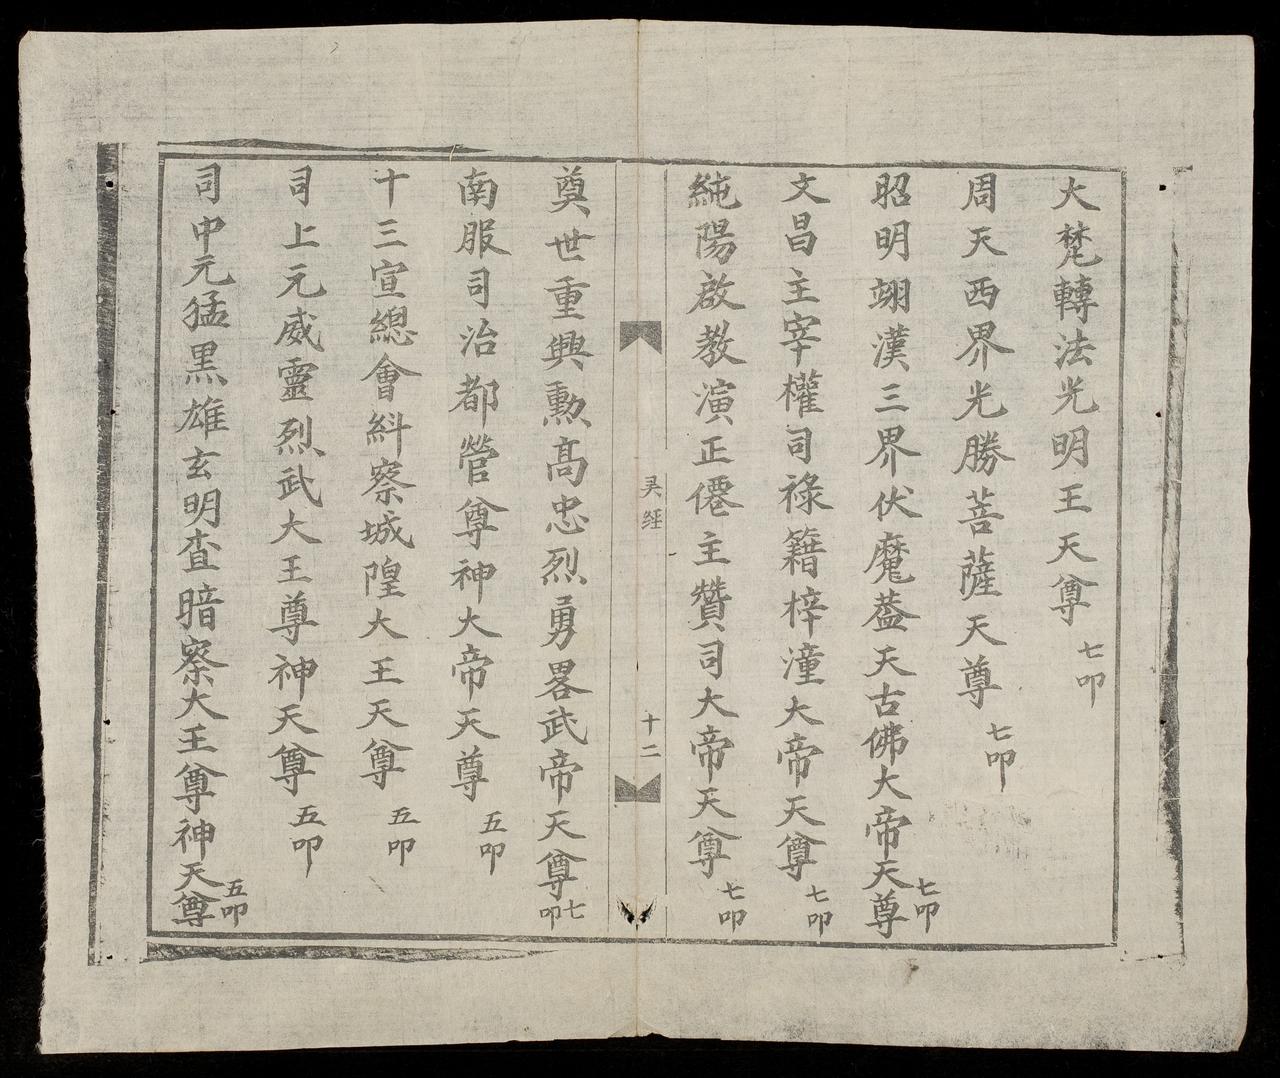 大梵轉法光明王天尊 七叩
周天西界光勝菩薩天尊 七叩
昭明翊漢三界伏魔蓋天古佛大帝天尊 七叩
文昌主宰權司祿籍梓潼大帝天尊 七叩
純陽啟教演正僊主贊司大帝天尊 七叩
經
十二
奠世重興勳高忠烈勇畧武帝天尊 七叩
南服司治都營尊神大帝天尊 五叩
十三宣總會糾察城隍大王天尊 五叩
司上元威靈烈武大王尊神天尊 五叩
司中元猛黑雄玄明查暗察大王尊神天尊 五叩